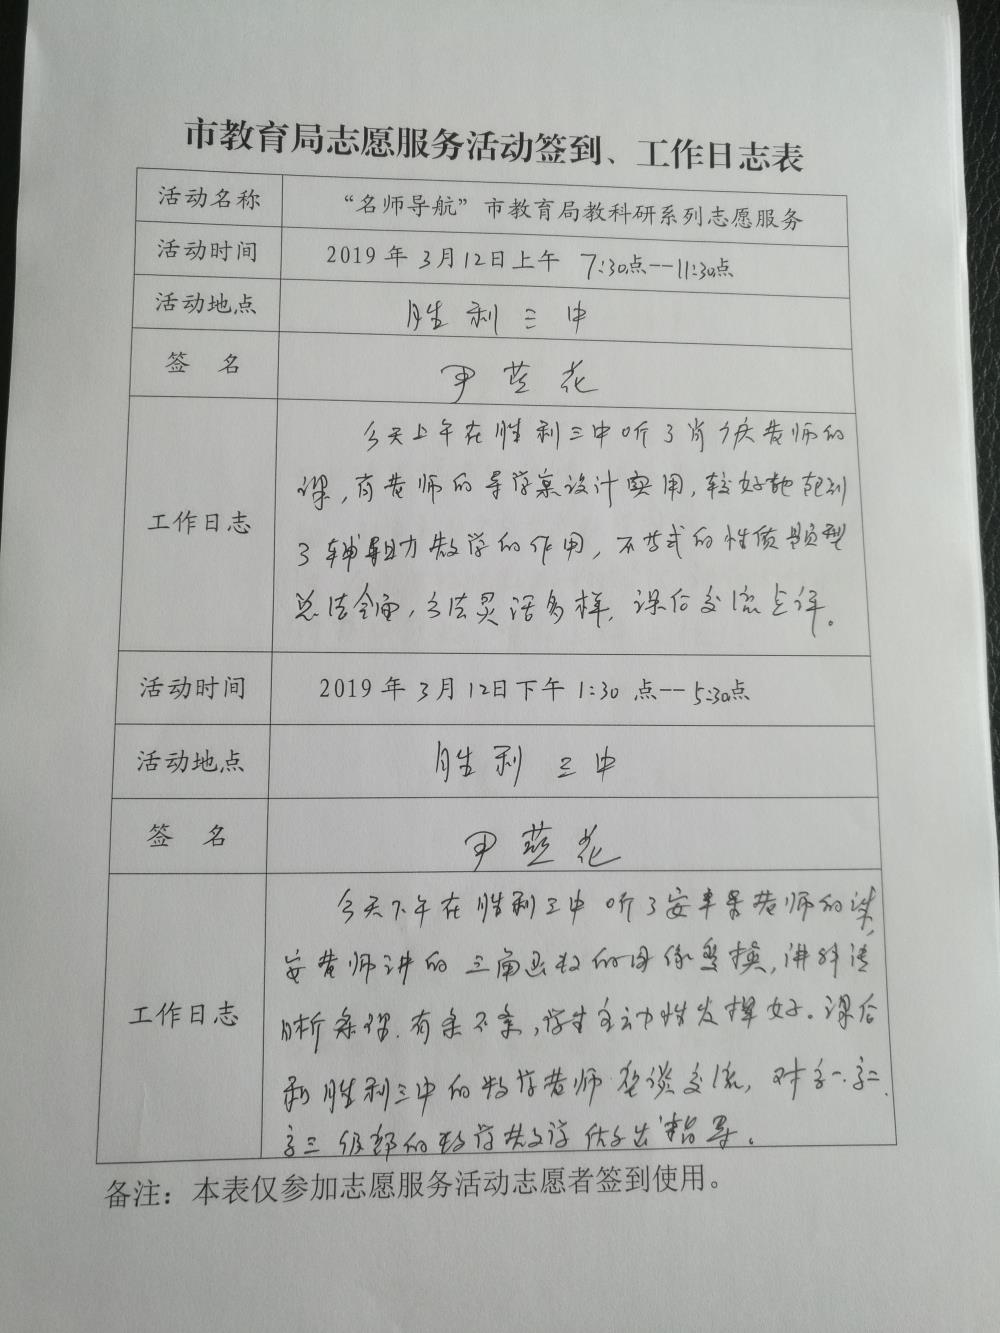 市教育局志愿服务活动签到、工作日志表
活动名称 “名师导航”市教育局教科研系列志愿服务
活动时间 2019年3月12日上午 7:30点--11:30点
活动地点 胜利三中
签 名 尹燕花
今天上午在胜利三中听了肖庆老师的
课,肖老师的导学案设计实用,较好地起到
工作日志
了辅助教学的作用,不等式的性质题型
总法全面,方法灵活多样,课后交流点评。
活动时间 2019年3月12日下午 1:30 点--5:30点
活动地点 胜利三中
签 名 尹燕花
今天下午在胜利三中听了安老师的课,
安老师讲的三角函数的图像变换,讲解清
工作日志
晰条理.有条不紊,学生主动性发挥好。课后
和胜利三中的数学老师座谈交流,对高一.高二.
高三级部的数学教学作出指导。
备注:本表仅参加志愿服务活动志愿者签到使用。